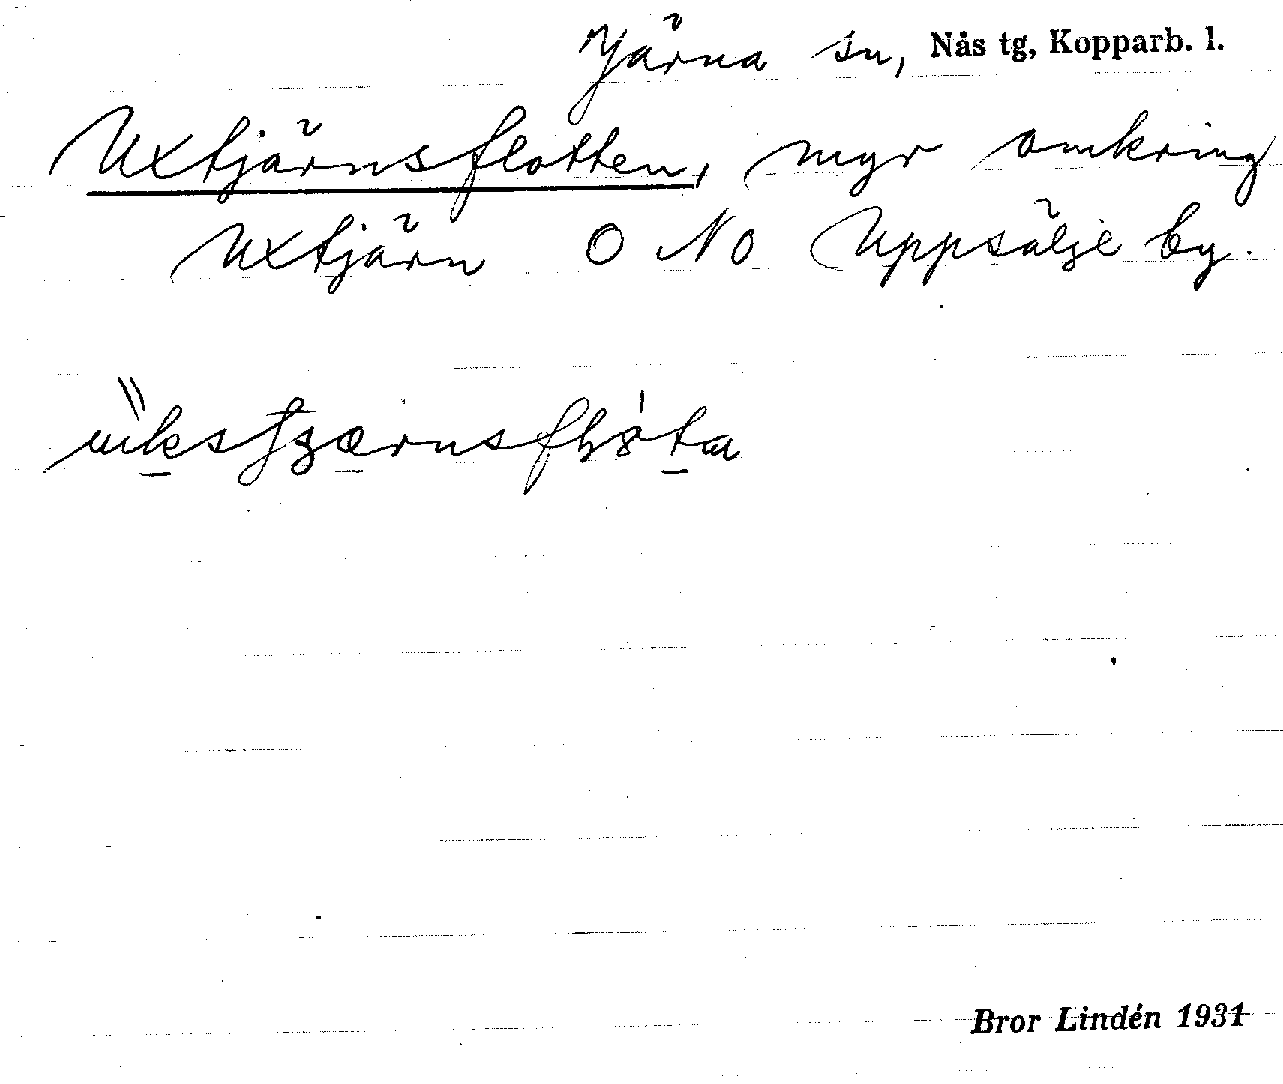 Järna sn, Nås tg, Kopparb. l.
Uxtjärnsflotten, myr omkring
Uxtjärn O NO Uppsälje by.
Bror Lindén 1931